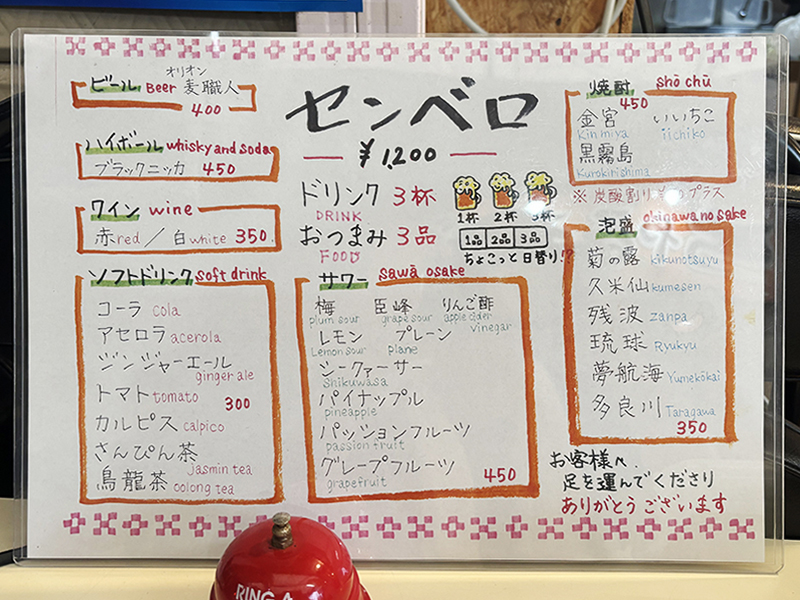 オリオン
ビール Beer 麦職人
400
ハイボール whisky and soda
ブラックニッカ 450
ワイン wine
赤red／白white 350
ソフトドリンク soft drink
コーラ cola
アセロラ acerola
ジンジャーエール
ginger ale
トマト tomato
300
カルピス calpico
さんぴん茶
jasmin tea
烏龍茶 oolong tea
センベロ
¥1,200
ドリンク 3杯
DRINK
1杯 2杯 3杯
おつまみ 3品
FOOD
1品 2品 3品
ちょこっと日替り!?
サワー sawā osake
梅 臣峰 りんご酢
plum sour grape sour apple cider
vinegar
レモン プレーン
Lemon sour plane
シークァーサー
Shikuwasa
パイナップル
pineapple
パッションフルーツ
passion fruit
グレープフルーツ
grapefruit
450
焼酎 shō chū
450
金宮 いいちこ
Kin miya iichiko
黒霧島
Kurokirishima
※炭酸割り プラス
泡盛 okinawa no sake
菊の露 kikunotsuyu
久米仙 kumesen
残波 zanpa
琉球 Ryukyu
夢航海 Yumekōkai
多良川 Taragawa
350
お客様へ
足を運んでくださり
ありがとうございます
RING A